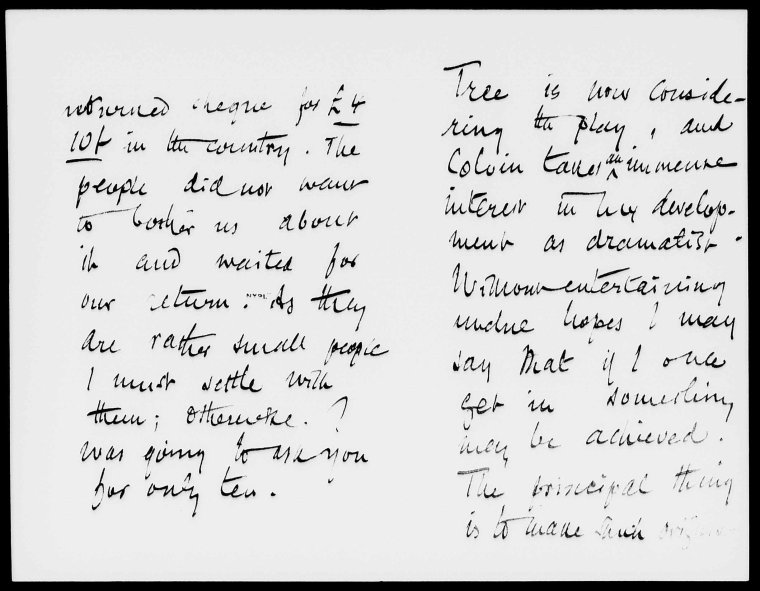 returned cheque for £4
10/- in the country. The
people did not want
to bother us about
it and waited for
our return. As they
are rather small people
I must settle with
them; otherwise. I
was going to ask you
for only ten.
Tree is now conside-
ring the play, and
Colvin takes an immense
interest in my develop-
ment as dramatist.
Without entertaining
undue hopes I may
say that if I once
get in something
may be achieved.
The principal thing
is to make such